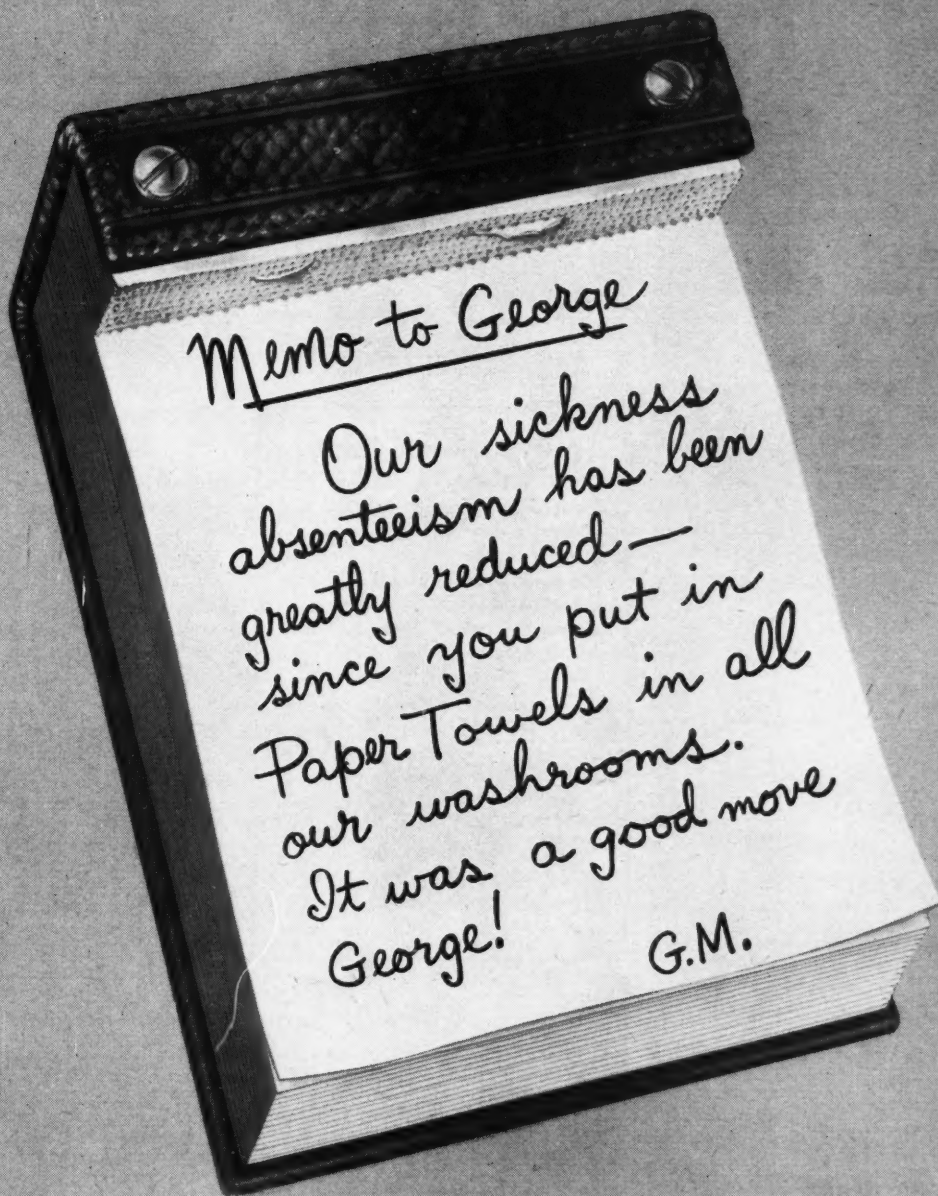 Memo to George
Our sickness
absenteeism has been
greatly reduced—
since you put in
Paper Towels in all
our washrooms.
It was a good move
George!    G.M.